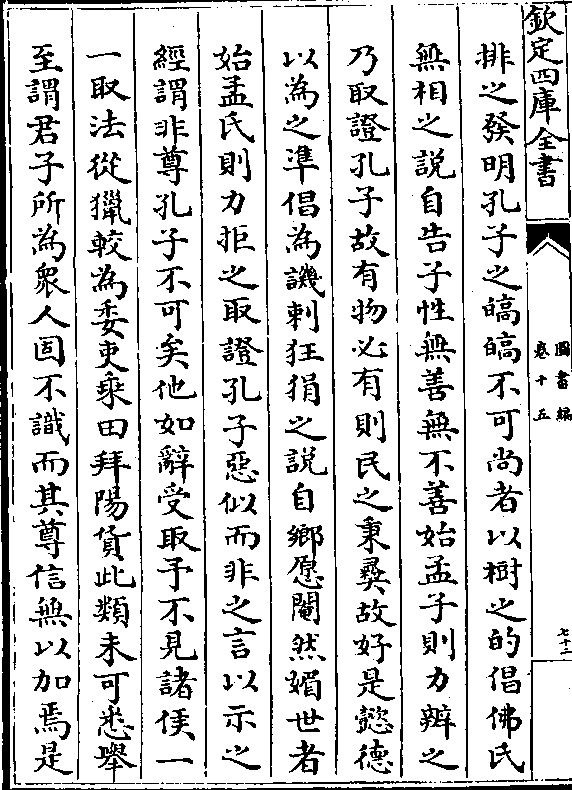 欽定四庫全書
圖書編
卷十五
七十二
排之發明孔子之皜皜不可尚者以樹之的倡佛氏
無相之說自告子性無善無不善始孟子則力辨之
乃取證孔子故有物必有則民之秉彞故好是懿德
以為之凖倡為譏刺狂狷之說自鄉愿閹然媚世者
始孟氏則力拒之取證孔子惡似而非之言以示之
經謂非尊孔子不可矣他如辭受取予不見諸侯一
一取法從獵較為委吏乘田拜陽貨此類未可悉舉
至謂君子所為衆人固不識而其尊信無以加焉是